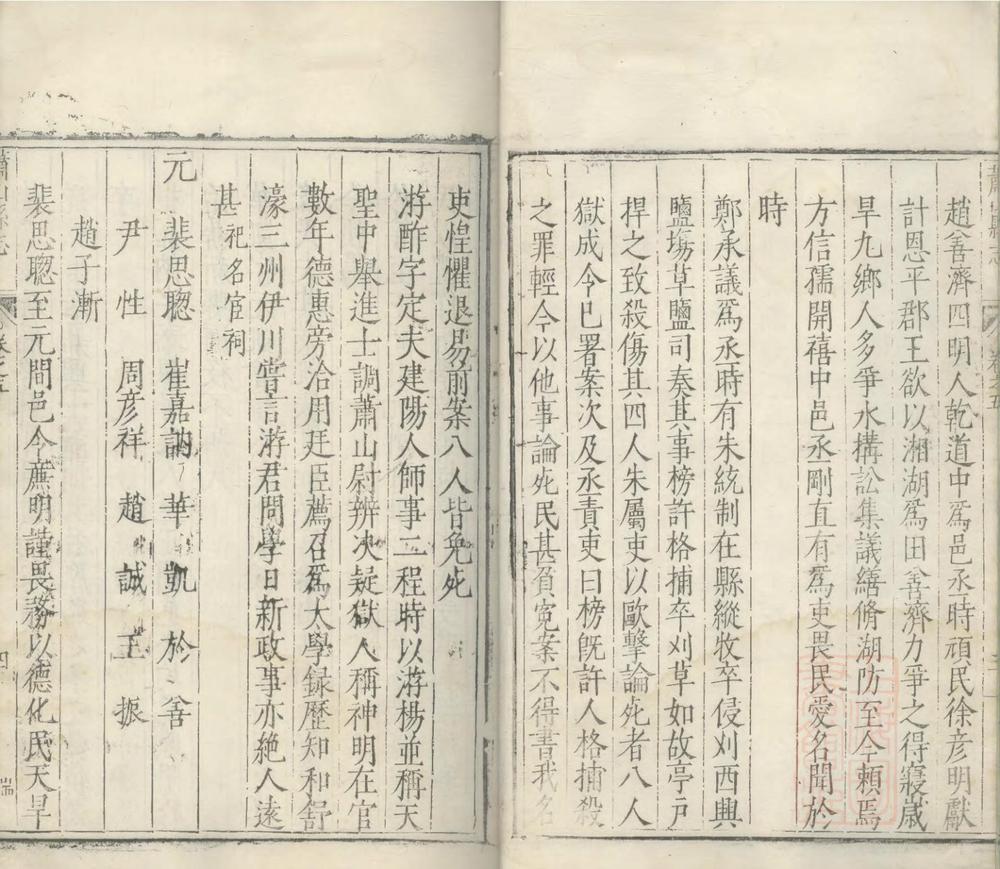 趙善濟四明人乾道中爲邑丞時頑民徐彦明獻
計恩平郡王欲以湘湖爲田善濟力爭之得寢歲
旱九鄉人多爭水搆訟集議繕脩湖防至今頼焉
方信孺開禧中邑丞剛直有爲吏畏民愛名聞於
時
鄭承議爲丞時有朱統制在縣縱牧卒侵刈西興
鹽塲草鹽司奏其事榜許格捕卒刈草如故亭戸
捍之致殺傷其四人朱屬吏以歐擊論死者八人
獄成令已署案次及丞責吏曰榜旣許人格捕殺
之罪輕今以他事論死民甚負寃案不得書我名
吏惶懼退易前案八人皆免死
游酢字定夫建陽人師事二程時以游楊並稱天
聖中舉進士調蕭山尉辨决疑獄人稱神明在官
數年德惠旁洽用廷臣薦召爲太學録歷知和舒
濠三州伊川嘗言游君問學日新政事亦絶人遠
甚祀名宦祠
元 裴思聦 崔嘉訥 華凱 於善
尹性 周彦祥 趙誠 王振
趙子漸
裴思聦至元間邑令蔗明謹畏務以德化民天旱